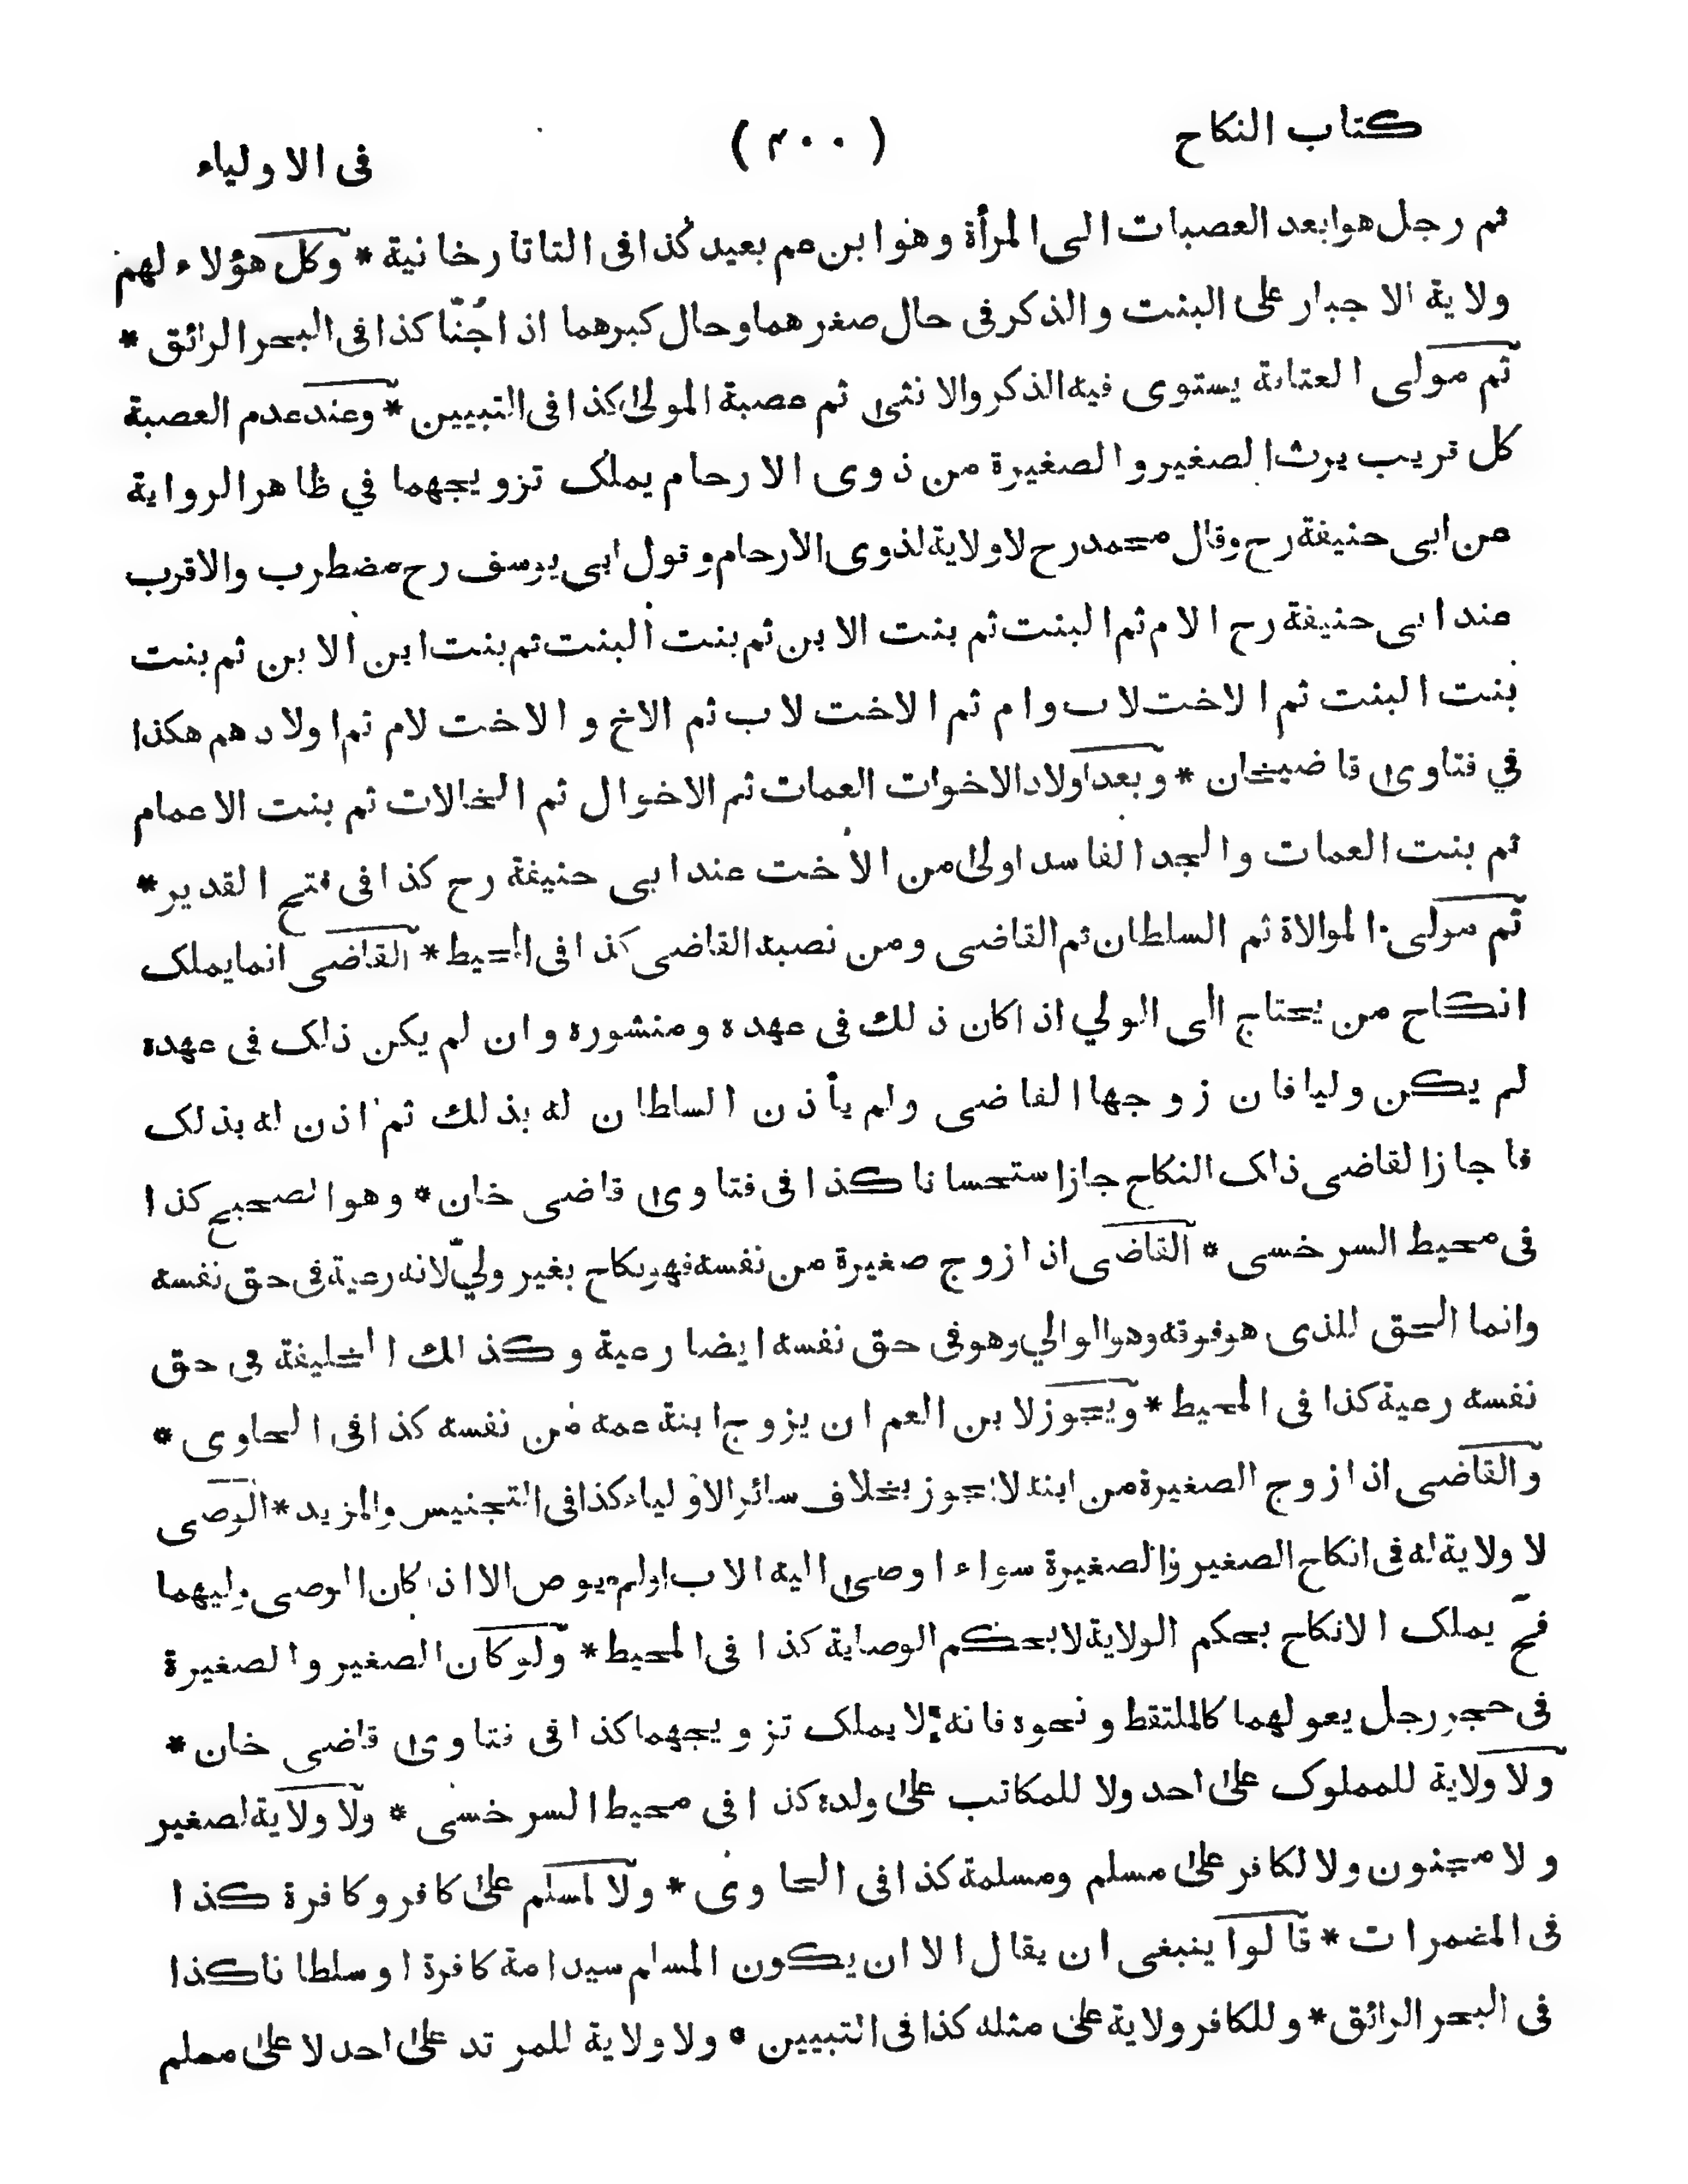 كتاب النكاح
( ۴۰۰ )
فى الاولياء
ثم رجل هو ابعد العصبات الى المرأة وهو ابن عم بعيد كذا فى التاتارخانية * وكل هؤلاء لهم
ولاية الاجبار على البنت والذكر فى حال صغرهما وحال كبرهما اذا جُنّا كذا فى البحر الرائق *
ثم مولى العتاقة يستوى فيه الذكر والانثى ثم عصبة المولى كذا فى التبيين * وعند عدم العصبة
كل قريب يرث الصغير والصغيرة من ذوى الارحام يملك تزويجهما في ظاهر الرواية
عن ابى حنيفة رح وقال محمد رح لا ولاية لذوى الارحام وقول ابى يوسف رح مضطرب والاقرب
عند ابى حنيفة رح الام ثم البنت ثم بنت الابن ثم بنت البنت ثم بنت ابن الابن ثم بنت
بنت البنت ثم الاخت لاب وام ثم الاخت لاب ثم الاخ والاخت لام ثم اولادهم هكذا
في فتاوى قاضيخان * وبعد اولاد الاخوات العمات ثم الاخوال ثم الخالات ثم بنت الاعمام
ثم بنت العمات والجد الفاسد اولى من الاخت عند ابى حنيفة رح كذا فى فتح القدير *
ثم مولى الموالاة ثم السلطان ثم القاضى ومن نصبه القاضى كذا فى المحيط * القاضى انما يملك
انكاح من يحتاج الى الولي اذا كان ذلك فى عهده ومنشوره وان لم يكن ذلك فى عهده
لم يكن وليا فان زوجها القاضى ولم يأذن السلطان له بذلك ثم اذن له بذلك
فاجاز القاضى ذلك النكاح جاز استحسانا كذا فى فتاوى قاضى خان * وهو الصحيح كذا
فى محيط السرخسى * القاضى اذا زوج صغيرة من نفسه فهو نكاح بغير وليّ لانه رعية فى حق نفسه
وانما الحق للذى هو فوقه وهو الوالي وهو فى حق نفسه ايضا رعية وكذلك الخليفة فى حق
نفسه رعية كذا فى المحيط * ويجوز لابن العم ان يزوج ابنة عمه من نفسه كذا فى الحاوى *
والقاضى اذا زوج الصغيرة من ابنه لا يجوز بخلاف سائر الاولياء كذا فى التجنيس والمزيد * الوصى
لا ولاية له فى انكاح الصغير والصغيرة سواء اوصى اليه الاب اولم يوص الا اذا كان الوصى وليهما
فح يملك الانكاح بحكم الولاية لا بحكم الوصاية كذا فى المحيط * ولو كان الصغير والصغيرة
فى حجر رجل يعولهما كالملتقط ونحوه فانه لا يملك تزويجهما كذا فى فتاوى قاضى خان *
ولا ولاية للمملوك على احد ولا للمكاتب على ولده كذا فى محيط السرخسى * ولا ولاية لصغير
ولا مجنون ولا لكافر على مسلم ومسلمة كذا فى الحاوى * ولا لمسلم على كافر وكافرة كذا
فى المضمرات * قالوا ينبغى ان يقال الا ان يكون المسلم سيد امة كافرة او سلطانا كذا
فى البحر الرائق * وللكافر ولاية على مثله كذا فى التبيين * ولا ولاية للمرتد على احد لا على مسلم